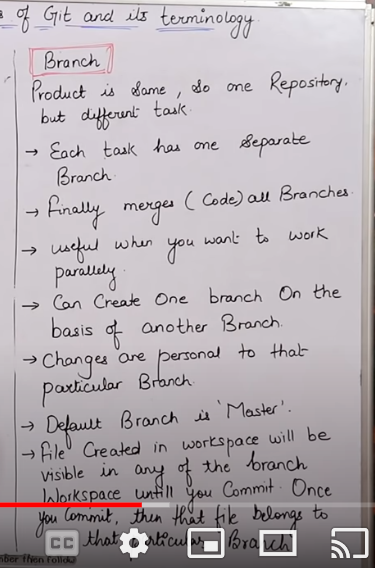 s of Git and its terminology
Branch
Product is Same, So one Repository.
but different task.
→ Each task has one Separate
Branch.
→ finally merges (Code) all Branches.
→ useful when you want to work
parallely.
→ Can Create One branch On the
basis of another Branch.
→ Changes are personal to that
particular Branch.
→ Default Branch is 'Master'.
→ File Created in workspace will be
visible in any of the branch
Workspace untill you Commit. Once
you Commit, then that file belongs to
that particular Branch
CC